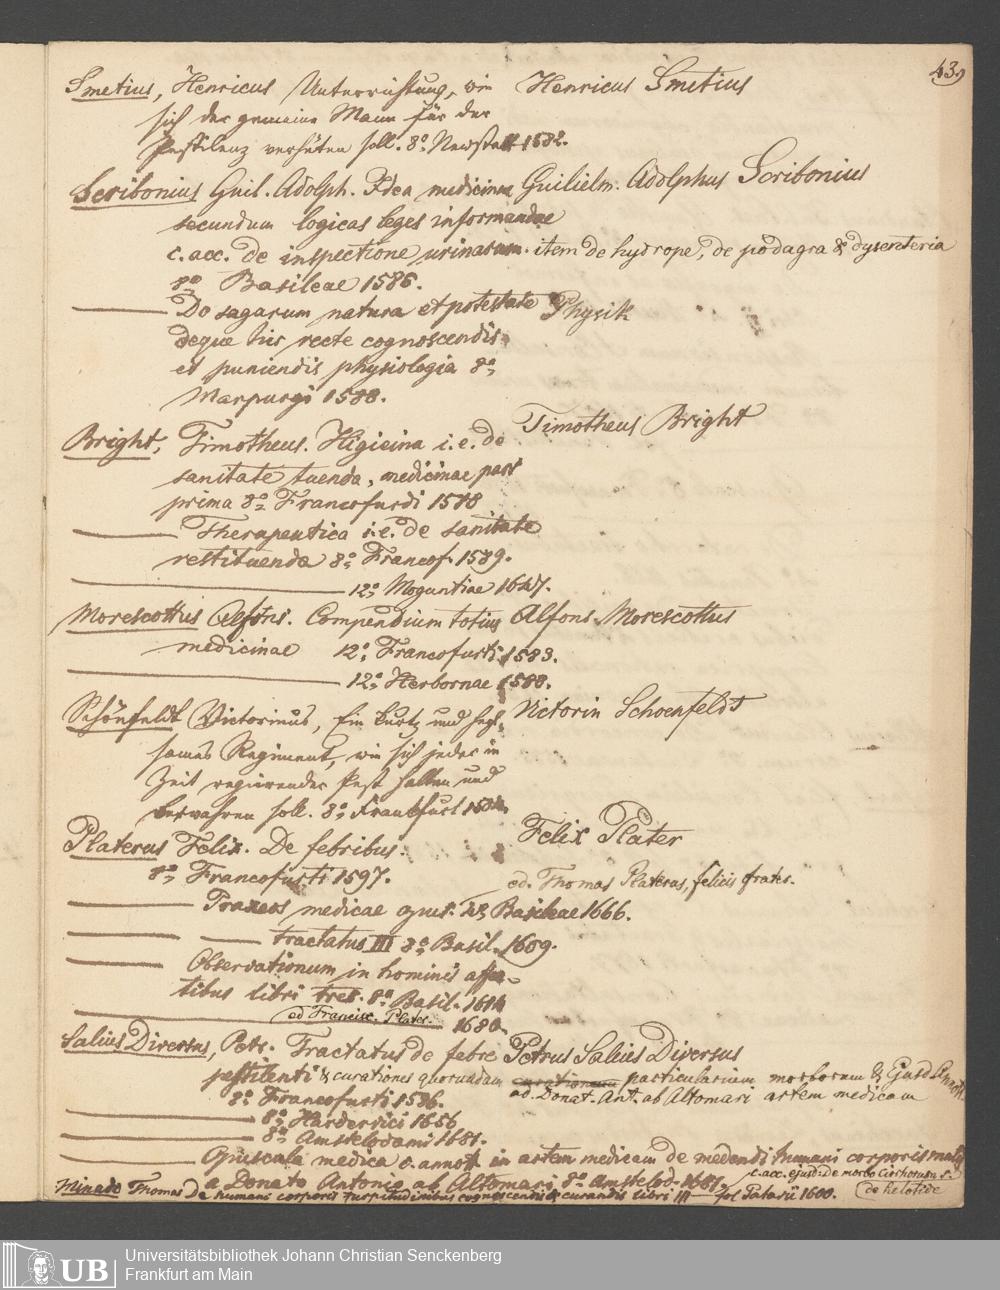 43.
Smetius, Henricus Unterrichtung, wie
sich der gemeine Mann für der
Pestilenz verhüten soll. 8º. Newstatt 1582.
Henricus Smetius
Scribonius Guil. Adolph. Idea medicinae
secundum logicas leges informandae
c. acc. de inspectione urinarum. item de hydrope, de podagra & dysenteria
8º Basileae 1585.
Guilielm. Adolphus Scribonius
De sagarum natura et potestate
deque his recte cognoscendis
et puniendis physiologia 8º
Marpurgi 1588.
Physik
Bright, Timotheus. Higieina i.e. de
sanitate tuenda, medicinae pars
prima 8º Francofurdi 1588
Timotheus Bright
Therapeutica i.e. de sanitate
restituenda 8º Francof. 1589.
12º Moguntiae 1647.
Morescottus Alfons. Compendium totius
medicinae 12º Francofurti 1583.
12º Herbornae 1588.
Alfons Morescottus
Schönfeldt Victorinus, Ein kurtz und heyl-
sames Regiment, wie sich jeder in
Zeit regierender Pest halten und
bewahren soll. 8º Frankfurt
Victorin Schoenfeldt
Platerus Felix. De febribus.
8º Francofurti 1597.
Felix Plater
Praxeos medicae opus. Basileae 1666.
ed. Thomas Platerus, felicis frater.
tractatus III 8º Basil. 1609.
Observationum in hominis affec-
tibus libri tres. 8º Basil. 1614
ed Francisc. Plater. 1680.
Salius Diversus, Petr. Tractatus de febre
pestilenti & curationes quorundam particularium morborum &
ad Donat. Ant. ab Altomari artem medicam
8º Francofurti 1586.
Petrus Salius Diversus
8º Hardervici 1656
8º Amstelodami 1681.
Opuscula medica c. annott in artem medicam de medendi humani corporis malis
a Donato Antonio ab Altomari 8º Amstelod. 1681.
Minado Thomas De humani corporis turpitudinibus cognoscendis & curandis libri III fol Patavii 1600.
Universitätsbibliothek Johann Christian Senckenberg
Frankfurt am Main
UB